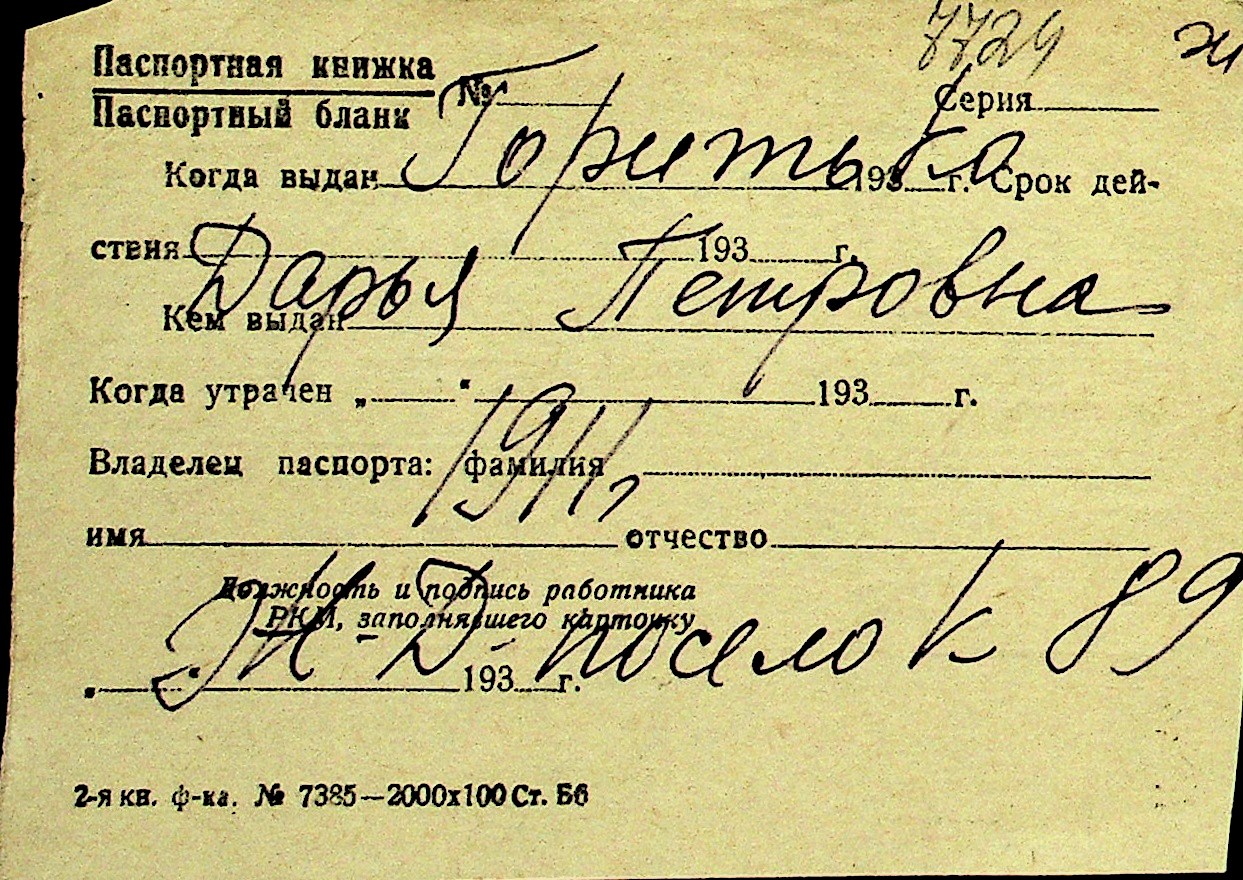 7729 ж
Паспортная книжка
Паспортный бланк № Серия
Горитька
Когда выдан 193 г. Срок дей-
ствия 193 г.
Дарья Петровна
Кем выдан
Когда утрачен „ “ 193 г.
1911,
Владелец паспорта: фамилия
имя отчество
Должность и подпись работника
РКМ, заполнявшего карточку
Ж-Д- поселок 89
„ “ 193 г.
2-я кв. ф-ка. № 7385—2000х100 Ст. Бб